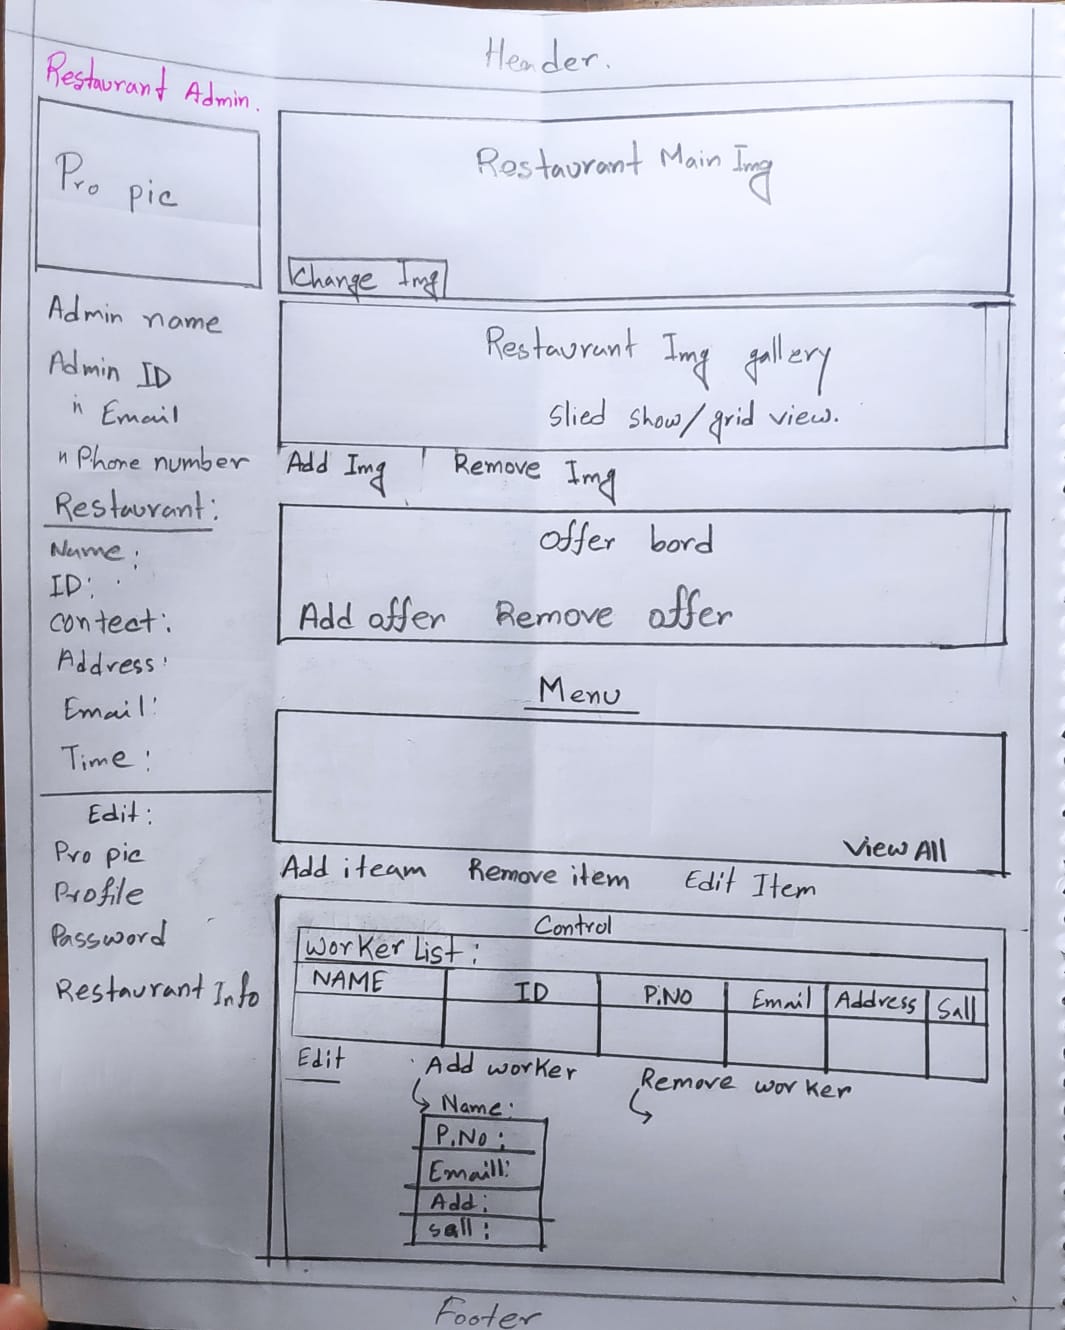 Header.
Restaurant Admin.
Pro pic
Admin name
Admin ID
" Email
" Phone number
Restaurant:
Name:
ID:
contect:
Address:
Email:
Time:
Edit:
Pro pic
Profile
Password
Restaurant Info
Restaurant Main Img
Change Img
Restaurant Img gallery
Slied show/grid view.
Add Img Remove Img
offer bord
Add offer Remove offer
Menu
View All
Add iteam Remove item Edit Item
Control
Worker List:
NAME ID P.NO Email Address Sall
Edit Add worker Remove worker
Name:
P.No:
Emaill:
Add:
sall:
Footer